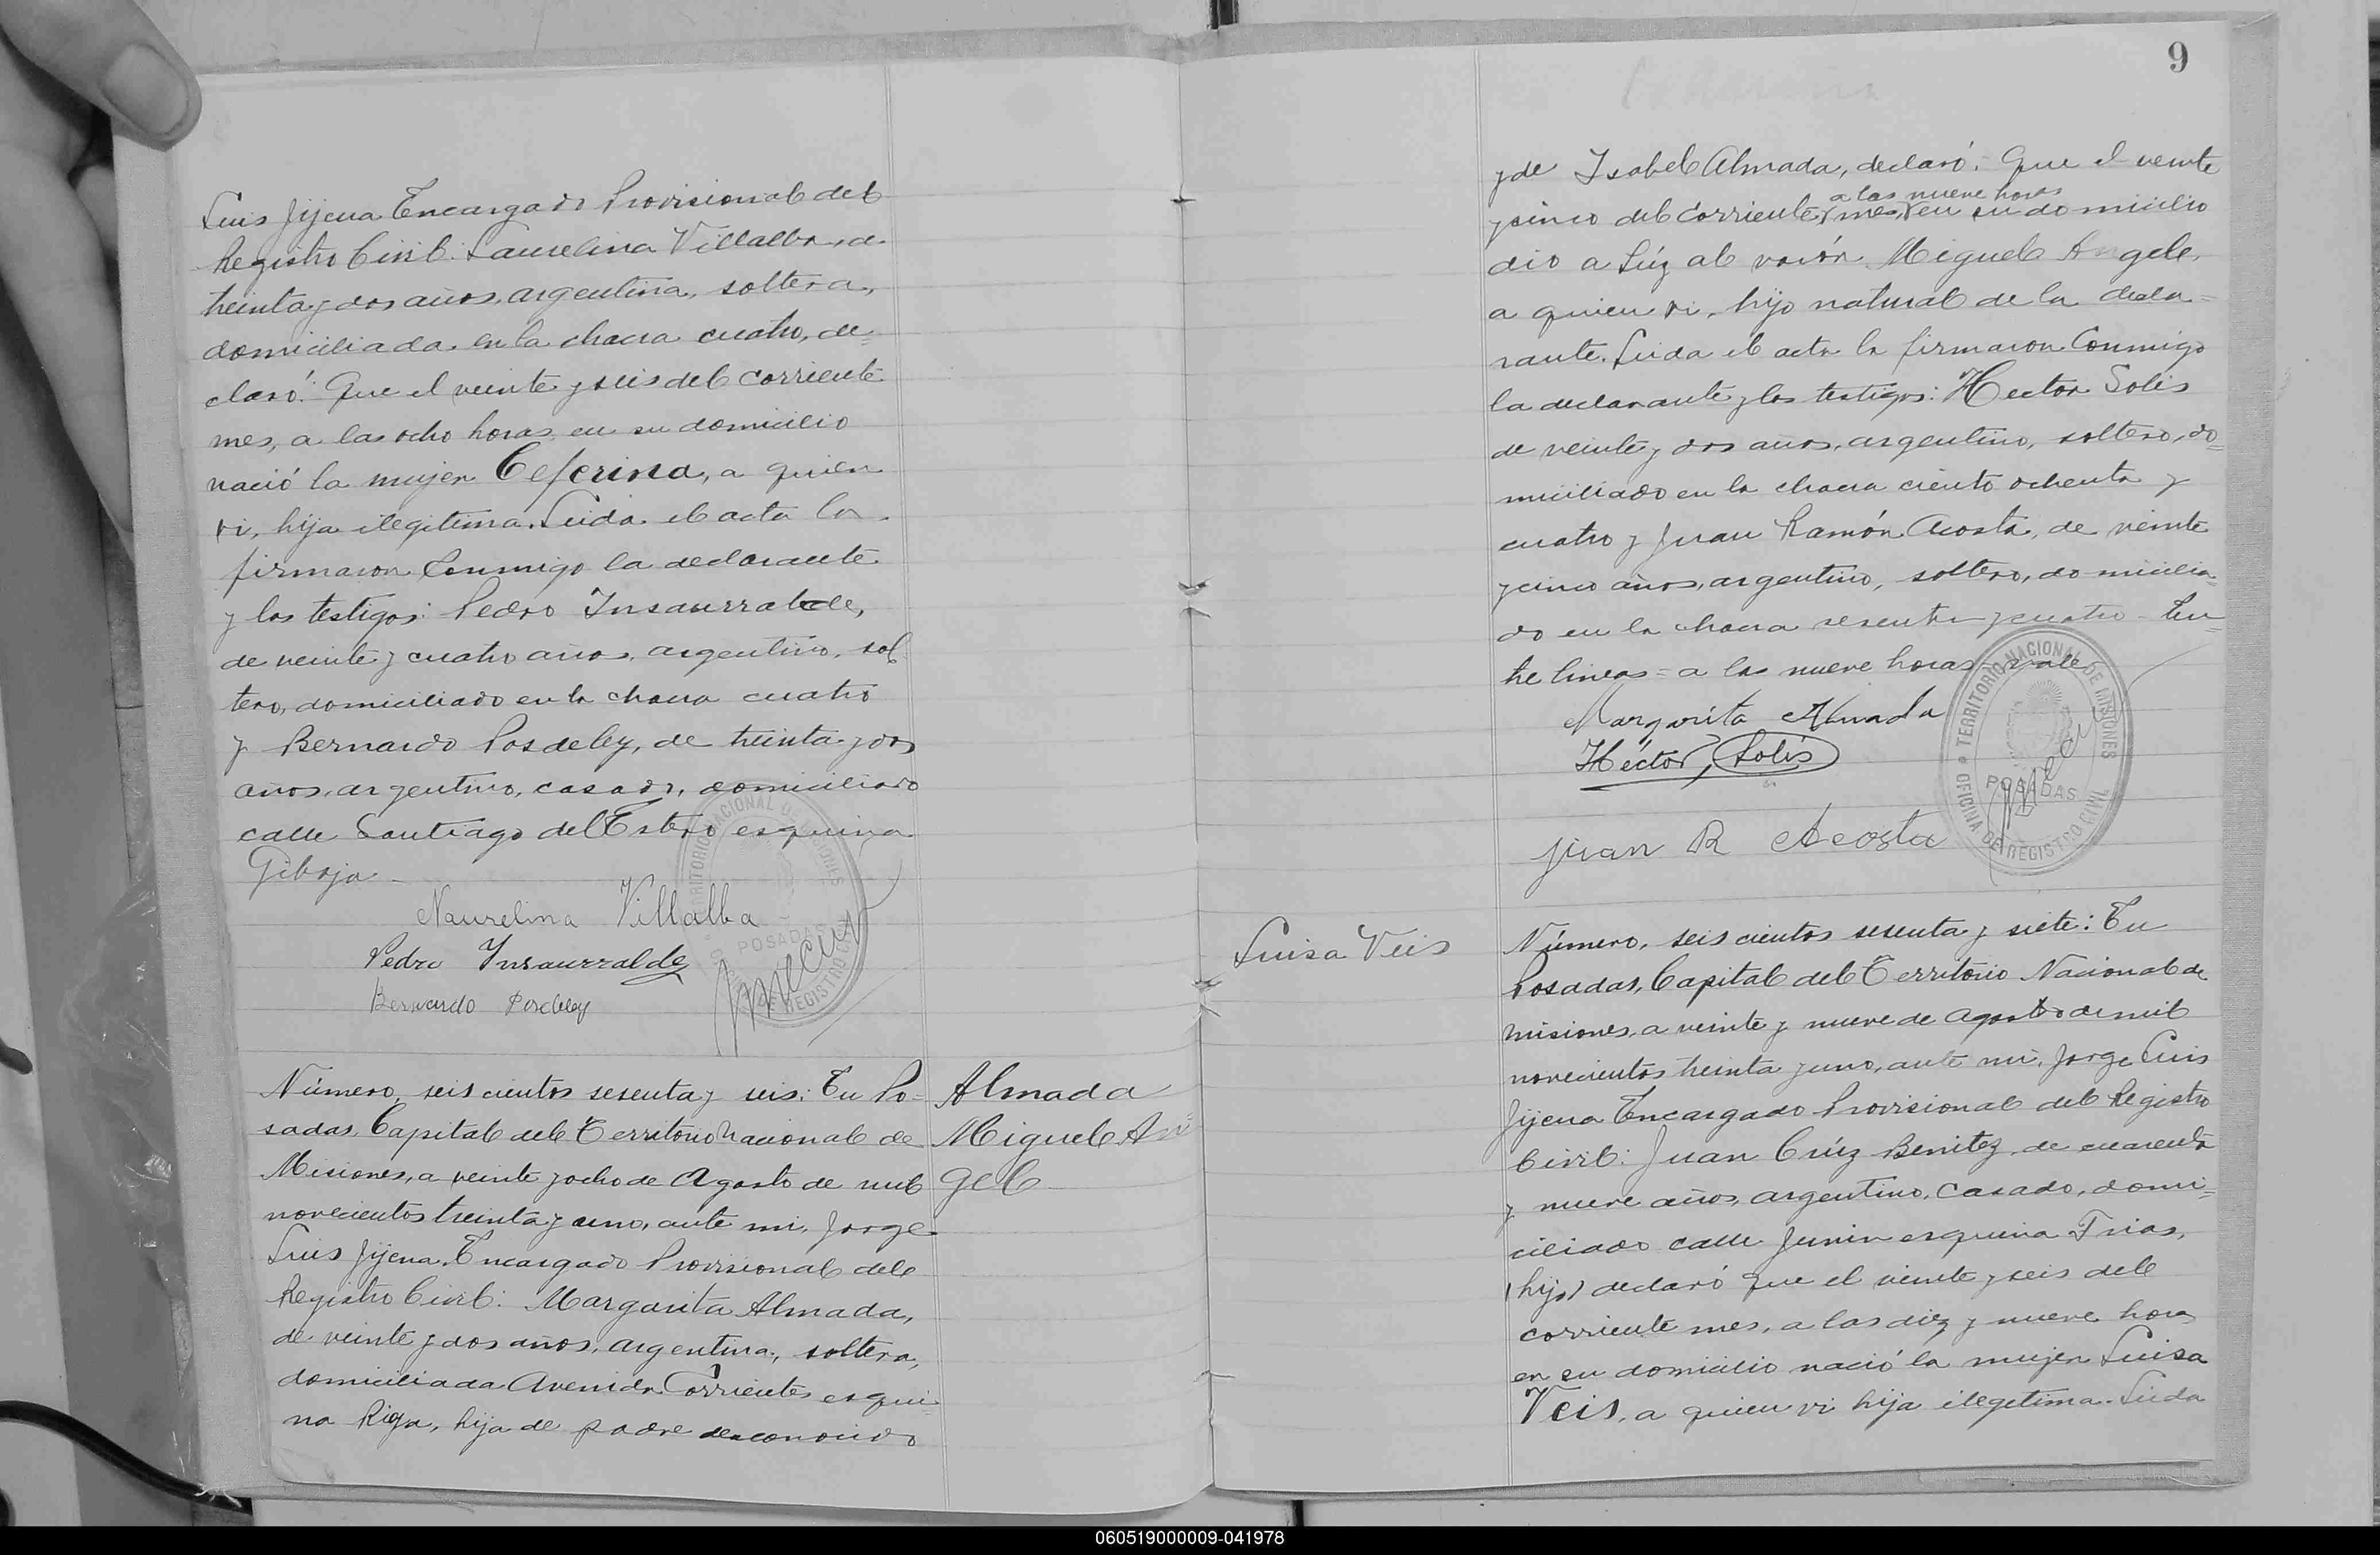 Luis Jijena Encargado Provisional del
Registro Civil: Laurelina Villalba, de
treinta y dos años, argentina, soltera,
domiciliada en la chacra cuatro, de=
claró: Que el veinte y seis del corriente
mes, a las ocho horas en su domicilio
nació la mujer Ceferina, a quien
vi, hija ilegitima. Leida el acta la
firmaron Conmigo la declarante
y los testigos: Pedro Insaurralde,
de veinte y cuatro años, argentino, sol
tero, domiciliado en la chacra cuatro
y Bernardo Posdeley, de treinta y dos
años, argentino, casado, domiciliado
calle Santiago del Estero esquina
Naurelina Villalba
Pedro Insaurralde
Bernardo Posdeley
TERRITORIO NACIONAL DE MISIONES
POSADAS
OFICINA DE REGISTRO CIVIL
Número, seis cientos sesenta y seis: En Po=
sadas, Capital del Territorio Nacional de
Misiones, a veinte y ocho de Agosto de mil
novecientos treinta y uno, ante mi, Jorge
Luis Jijena, Encargado Provisional del
Registro Civil: Margarita Almada,
de veinte y dos años, argentina, soltera,
domiciliada Avenida Corrientes esqui
na Rioja, hija de padre desconocido
Almada
Miguel An
gel
9
y de Isabel Almada, declaró: Que el veinte
a las nueve horas
y cinco del corriente mes, en su domicilio
dio a lúz al varón Miguel Angel,
a quien vi, hijo natural de la decla=
rante. Leida el acta la firmaron Conmigo
la declarante y los testigos: Hector Solis
de veinte y dos años, argentino, soltero, do=
miciliado en la chacra ciento ochenta y
cuatro y Juan Ramón Acosta, de veinte
y cinco años, argentino, soltero, domicilia=
do en la chacra sesenta y cuatro - En=
tre lineas = a las nueve horas - vale
Margarita Almada
Héctor Solis
Juan R Acosta
TERRITORIO NACIONAL DE MISIONES
POSADAS
OFICINA DE REGISTRO CIVIL
Luisa Veis
Número, seis cientos sesenta y siete: En
Posadas, Capital del Territorio Nacional de
Misiones, a veinte y nueve de Agosto de mil
novecientos treinta y uno, ante mi, Jorge Luis
Jijena Encargado Provisional del Registro
Civil: Juan Crúz Benitez, de cuarenta
y nueve años, argentino, casado, domi=
ciliado calle Junin esquina Frias,
(hijo) declaró que el veinte y seis del
corriente mes, a las diez y nueve horas
en su domicilio nació la mujer Luisa
Veis, a quien vi hija ilegitima. Leida
060519000009-041978